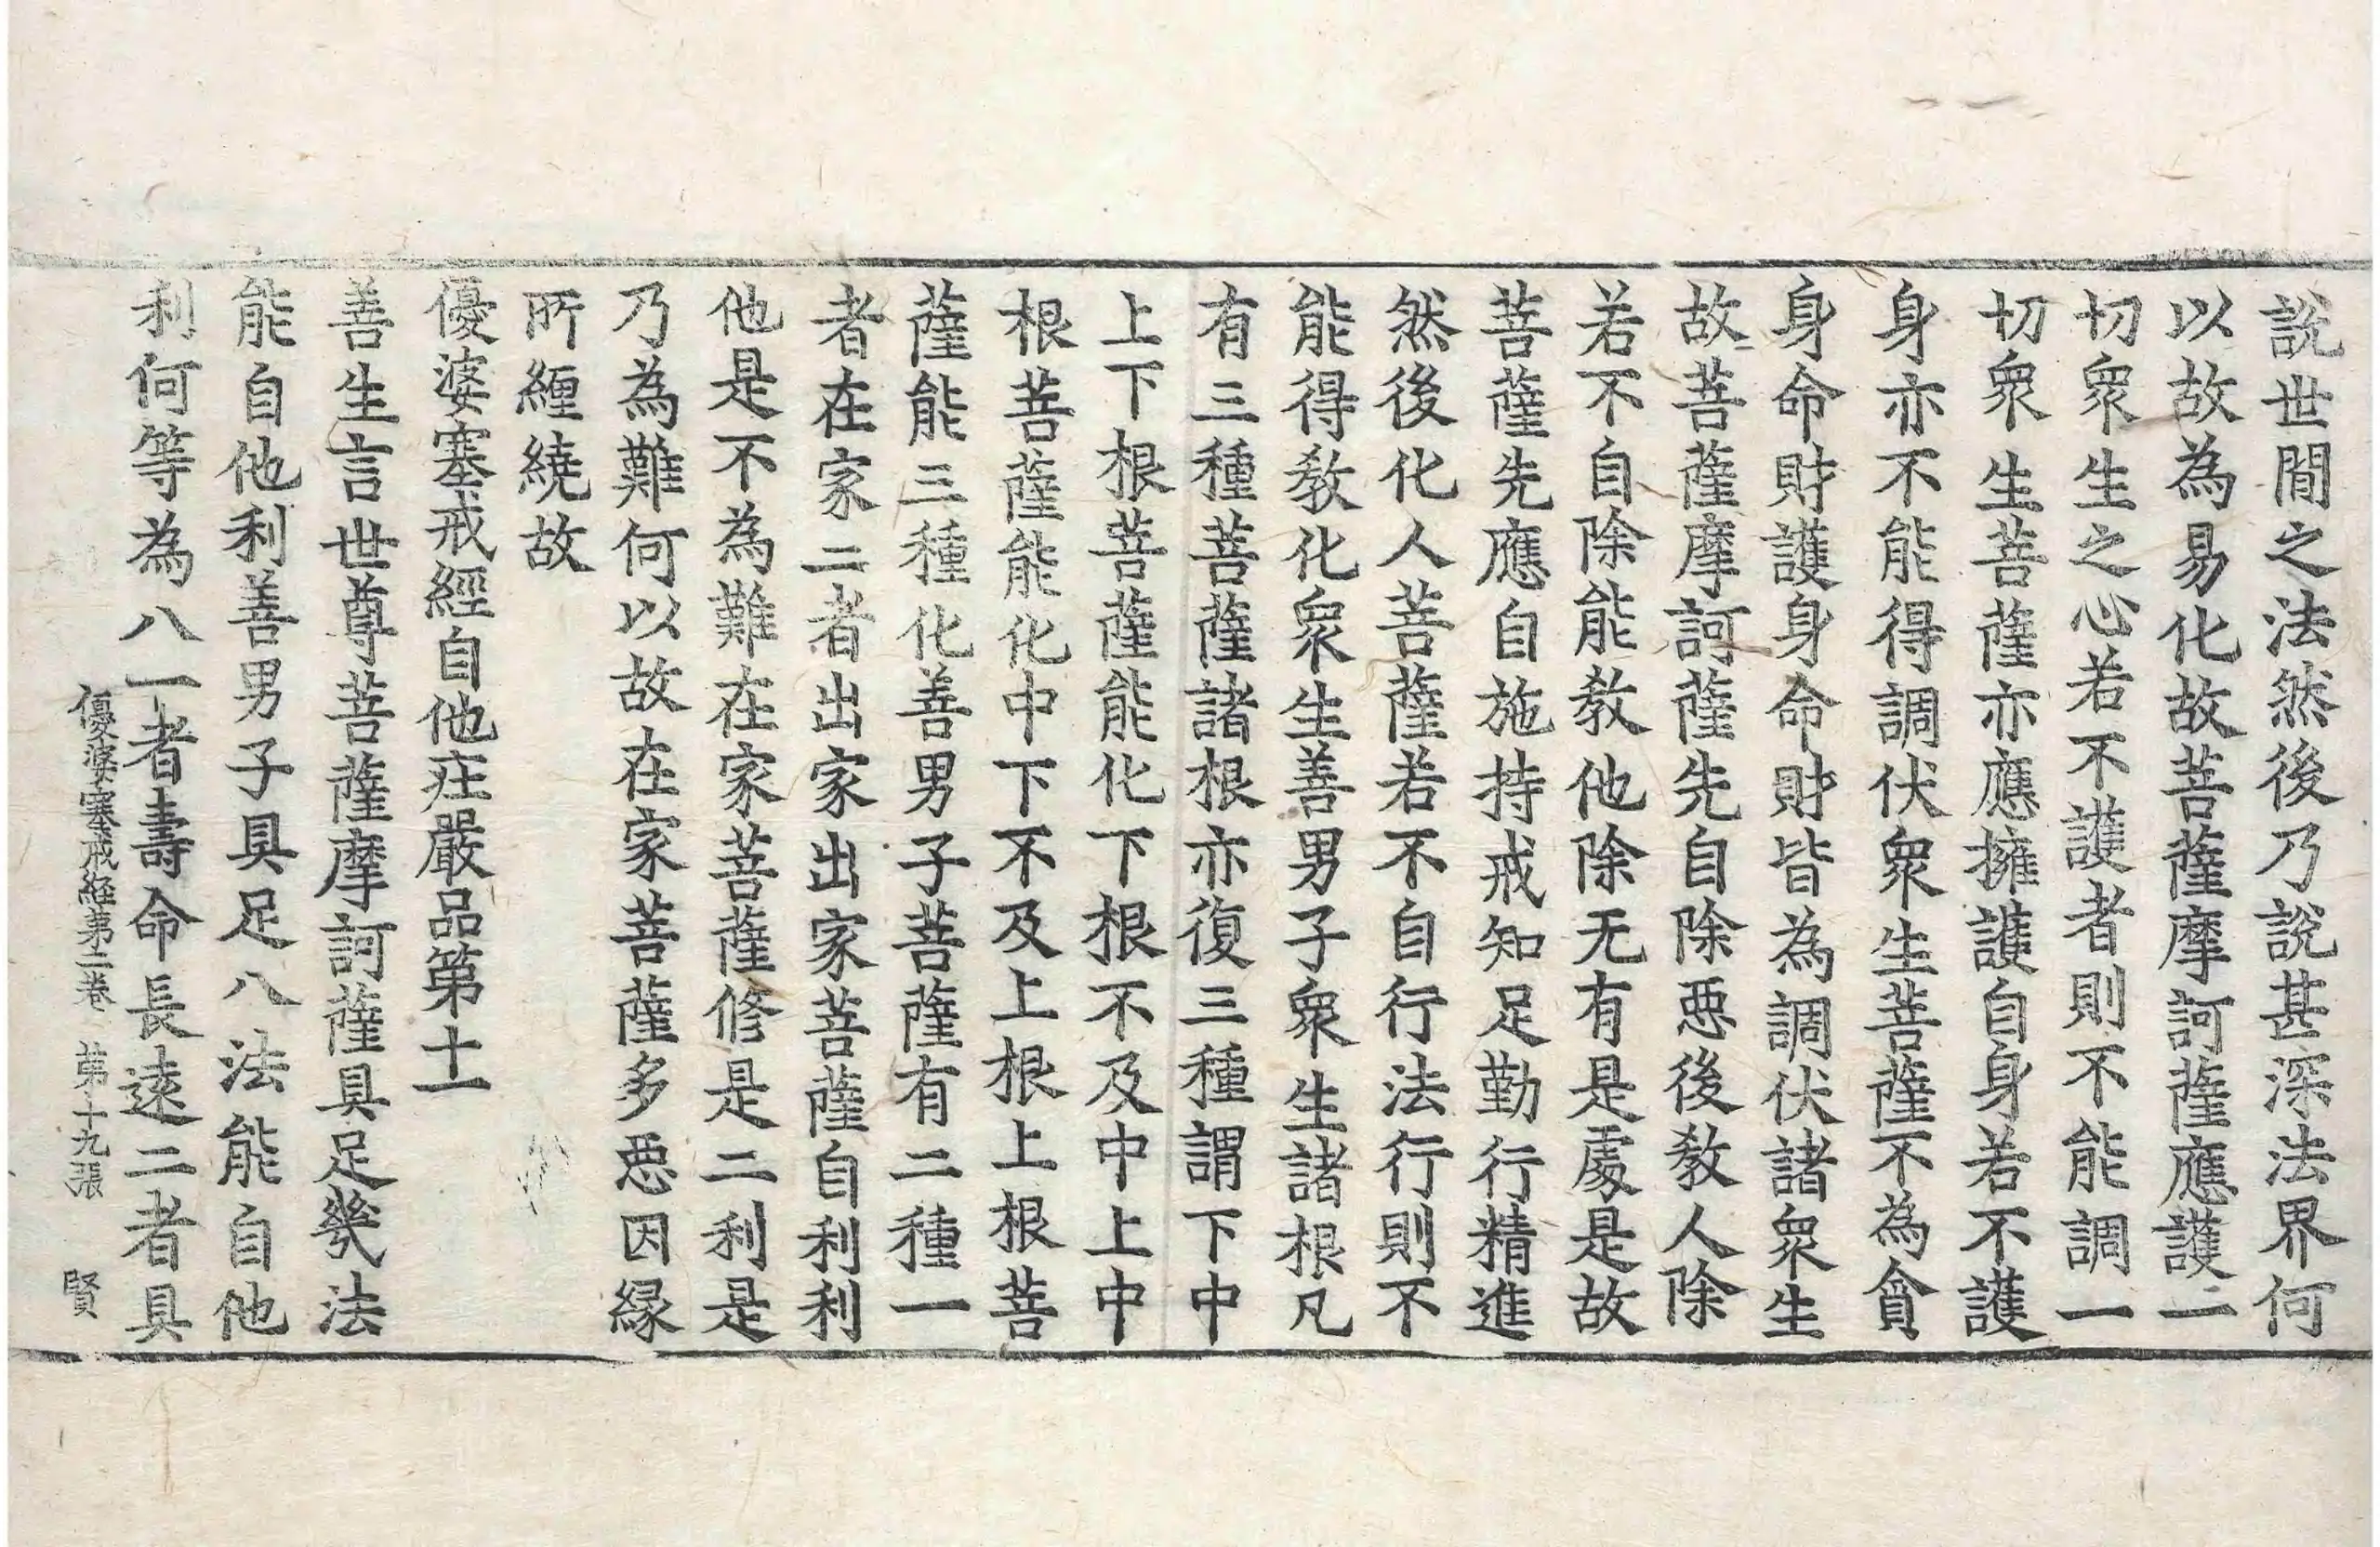 說世閒之法然後乃說甚深法界何
以故為易化故菩薩摩訶薩應護一
切衆生之心若不護者則不能調一
切衆生菩薩亦應擁護自身若不護
身亦不能得調伏衆生菩薩不為貪
身命財護身命財皆為調伏諸衆生
故菩薩摩訶薩先自除惡後敎人除
若不自除能敎他除无有是處是故
菩薩先應自施持戒知足勤行精進
然後化人菩薩若不自行法行則不
能得敎化衆生善男子衆生諸根凡
有三種菩薩諸根亦復三種謂下中
上下根菩薩能化下根不及中上中
根菩薩能化中下不及上根上根菩
薩能三種化善男子菩薩有二種一
者在家二者出家出家菩薩自利利
他是不為難在家菩薩修是二利是
乃為難何以故在家菩薩多惡因緣
所纏繞故
優婆塞戒經自他庄嚴品第十一
善生言世尊菩薩摩訶薩具足幾法
能自他利善男子具足八法能自他
利何等為八一者壽命長遠二者具
優婆塞戒經第二卷 第十九張 賢